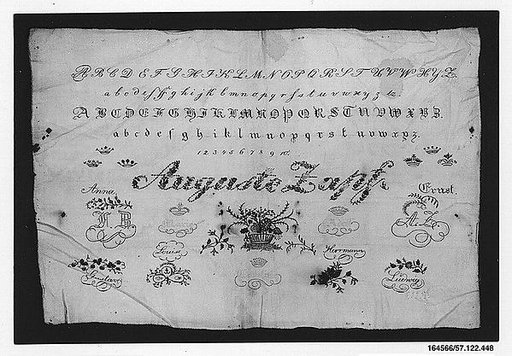 A B C D E F G H I K L M N O P Q R S T U V W X Y Z.
a b c d e f g h i j k l m n o p q r s t u v w x y z
A B C D E F G H I K L M N O P Q R S T U V W X Y Z.
a b c d e f g h i k l m n o p q r s t u v w x y z.
1 2 3 4 5 6 7 8 9 10.
Auguste Zapf.
Anna. Ernst.
F B
Herrmann
Ludwig
164566/57.122.448